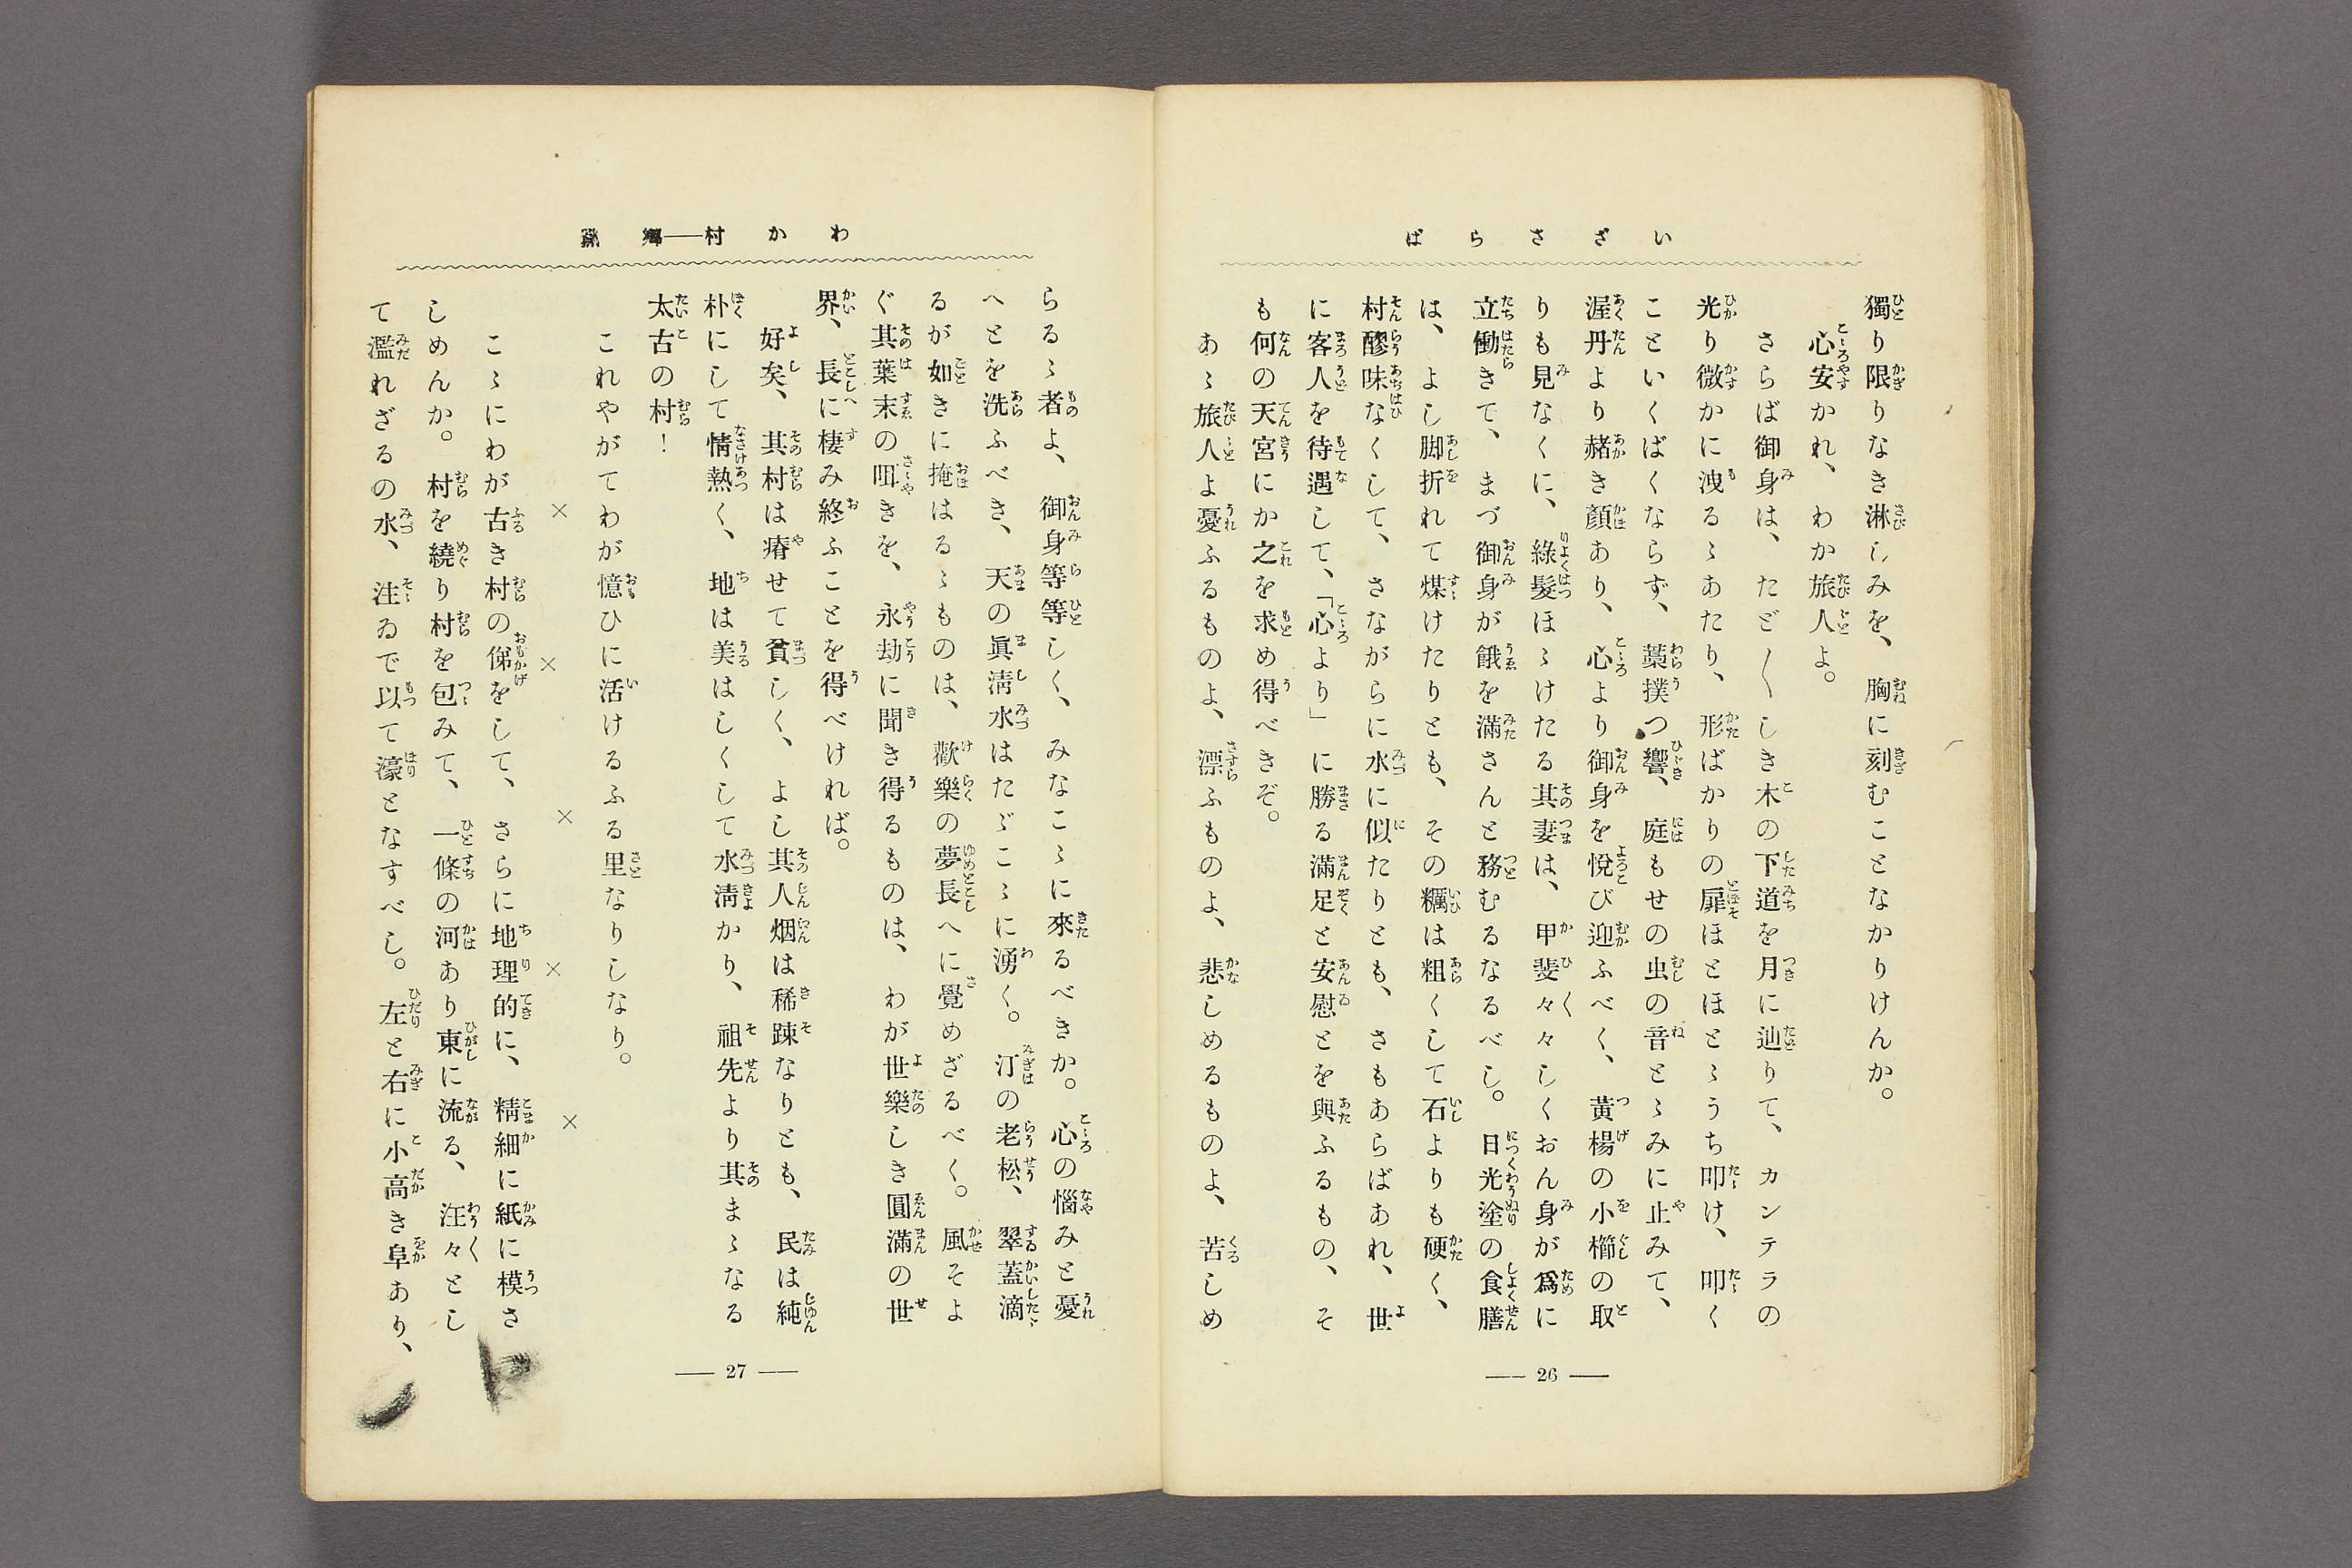 いざさらば
獨り限りなき淋しみを、胸に刻むことなかりけんか。
心安かれ、わか旅人よ。
さらば御身は、たど〱しき木の下道を月に辿りて、カンテラの
光り微かに洩るゝあたり、形ばかりの扉ほとほとゝうち叩け、叩く
こといくばくならず、藁撲つ響、庭もせの虫の音とゝみに止みて、
渥丹より赭き顔あり、心より御身を悅び迎ふべく、黄楊の小櫛の取
りも見なくに、綠髮ほゝけたる其妻は、甲斐々々しくおん身が爲に
立働きて、まづ御身が餓を滿さんと務むるなるべし。日光塗の食膳
は、よし脚折れて煤けたりとも、その糲は粗くして石よりも硬く、
村醪味なくして、さながらに水に似たりとも、さもあらばあれ、世
に客人を待遇して、「心より」に勝る滿足と安慰とを與ふるもの、そ
も何の天宮にか之を求め得べきぞ。
あゝ旅人よ憂ふるものよ、漂ふものよ、悲しめるものよ、苦しめ
— 26 —
わか村——鄕
らるゝ者よ、御身等等しく、みなこゝに來るべきか。心の惱みと憂
へとを洗ふべき、天の眞淸水はたゞこゝに湧く。汀の老松、翠蓋滴
るが如きに掩はるゝものは、歡樂の夢長へに覺めざるべく。風そよ
ぐ其葉末の咡きを、永劫に聞き得るものは、わが世樂しき圓滿の世
界、長に棲み終ふことを得べければ。
好矣、其村は瘠せて貧しく、よし其人烟は稀踈なりとも、民は純
朴にして情熱く、地は美はしくして水淸かり、祖先より其まゝなる
太古の村！
これやがてわが憶ひに活けるふる里なりしなり。
× × × × ×
こゝにわが古き村の俤をして、さらに地理的に、精細に紙に模さ
しめんか。村を繞り村を包みて、一條の河あり東に流る、汪々とし
て濫れざるの水、注ゐで以て濠となすべし。左と右に小高き阜あり、
— 27 —